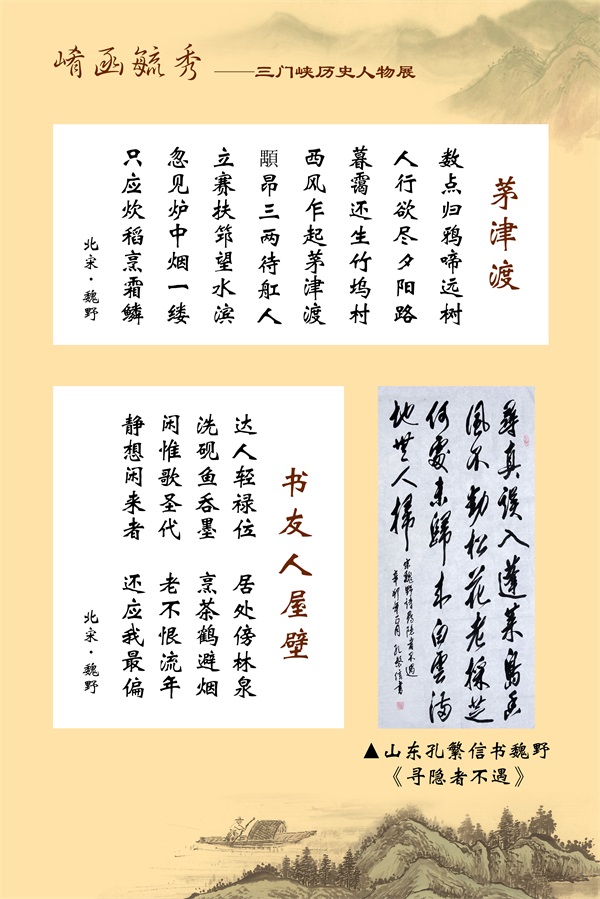 崤函毓秀 ——三门峡历史人物展
茅津渡
数点归鸦啼远树
人行欲尽夕阳路
暮霭还生竹坞村
西风乍起茅津渡
颙昂三两待舡人
立赛扶筇望水滨
忽见炉中烟一缕
只应炊稻烹霜鳞
北宋·魏野
书友人屋壁
达人轻禄位 居处傍林泉
洗砚鱼吞墨 烹茶鹤避烟
闲惟歌圣代 老不恨流年
静想闲来者 还应我最偏
北宋·魏野
尋真误入蓬莱島香
風不動松花老採芝
何處未歸来白雲满
地無人掃
宋魏野诗尋隐者不遇
孔繁信書
▲山东孔繁信书魏野
《寻隐者不遇》